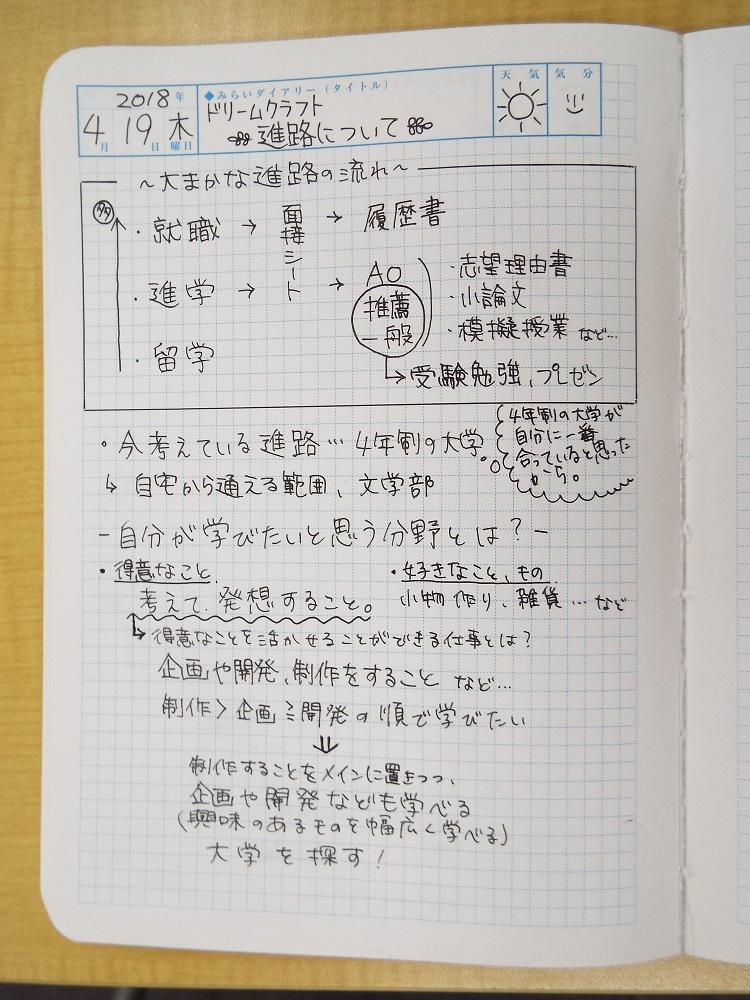 2018年
4月19日木曜日
◆みらいダイアリー(タイトル)
ドリームクラフト
進路について
天気
気分
~大まかな進路の流れ~
多
・就職→面接シート→履歴書
・進学→→AO
推薦
一般
・志望理由書
・小論文
・模擬授業 など…
↳受験勉強、プレゼン
・留学
・今考えている進路…4年制の大学
4年制の大学が
自分に一番
合っていると思った
から。
↳自宅から通える範囲、文学部
-自分が学びたいと思う分野とは?-
・得意なこと
考えて、発想すること。
・好きなこと、もの
小物作り、雑貨…など
↳得意なことを活かせることができる仕事とは?
企画や開発、制作をすること など…
制作>企画≧開発の順で学びたい
⇓
制作することをメインに置きつつ、
企画や開発なども学べる
(興味のあるものを幅広く学べる)
大学を探す!